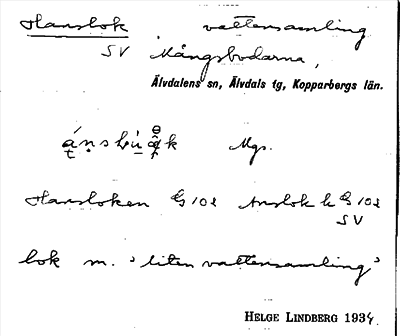 Hansbok vattensamling
SV Mångsbodarna,
Älvdalens sn, Älvdals tg, Kopparbergs län.
Mgs.
Hansboken G102 Ansbok k G102
SV
bok m. 'liten vattensamling'
HELGE LINDBERG 1934.